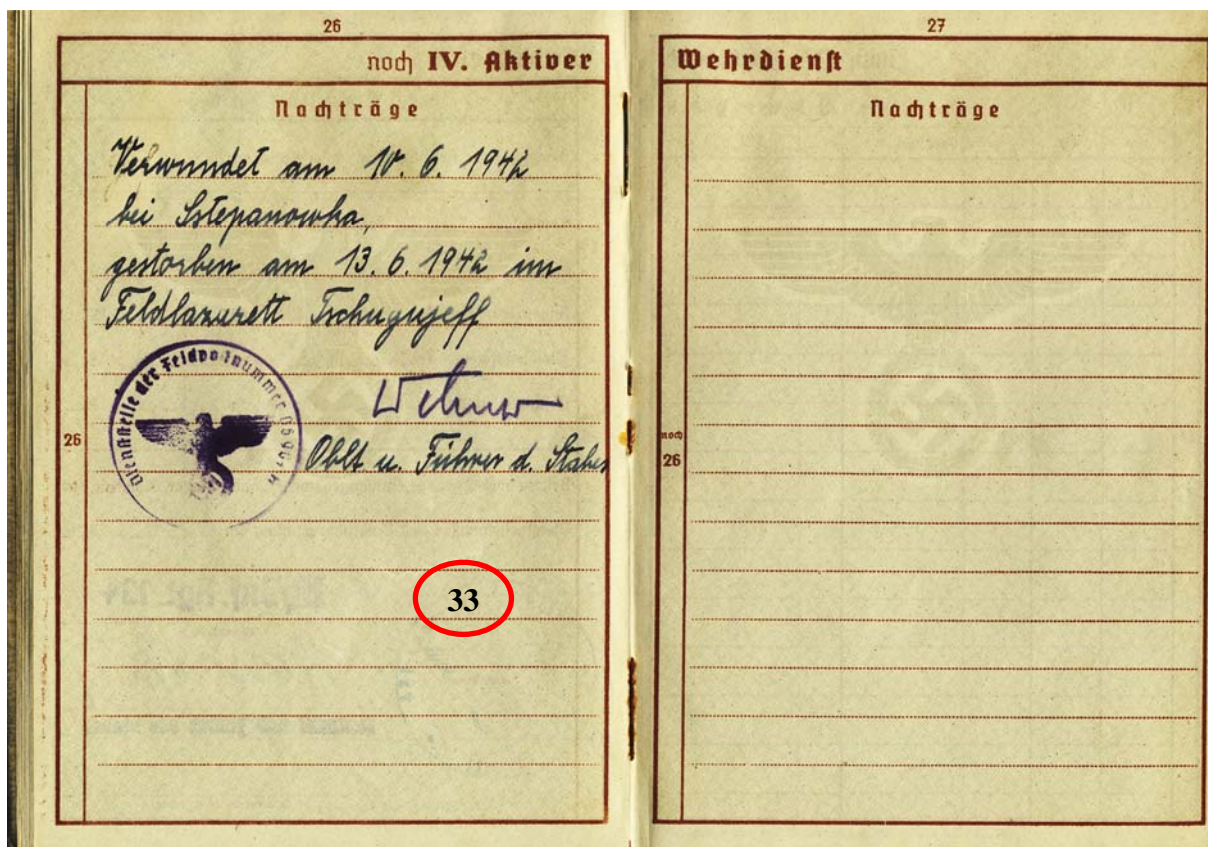 26
noch IV. Aktiver
Nachträge
Verwundet am 10. 6. 1942
bei Sstepanowka,
gestorben am 13. 6. 1942 im
Feldlazarett Tschugujeff
Dienststelle der Feldpostnummer
26
Oblt u. Führer d. Stabes
33
27
Wehrdienst
Nachträge
noch
26